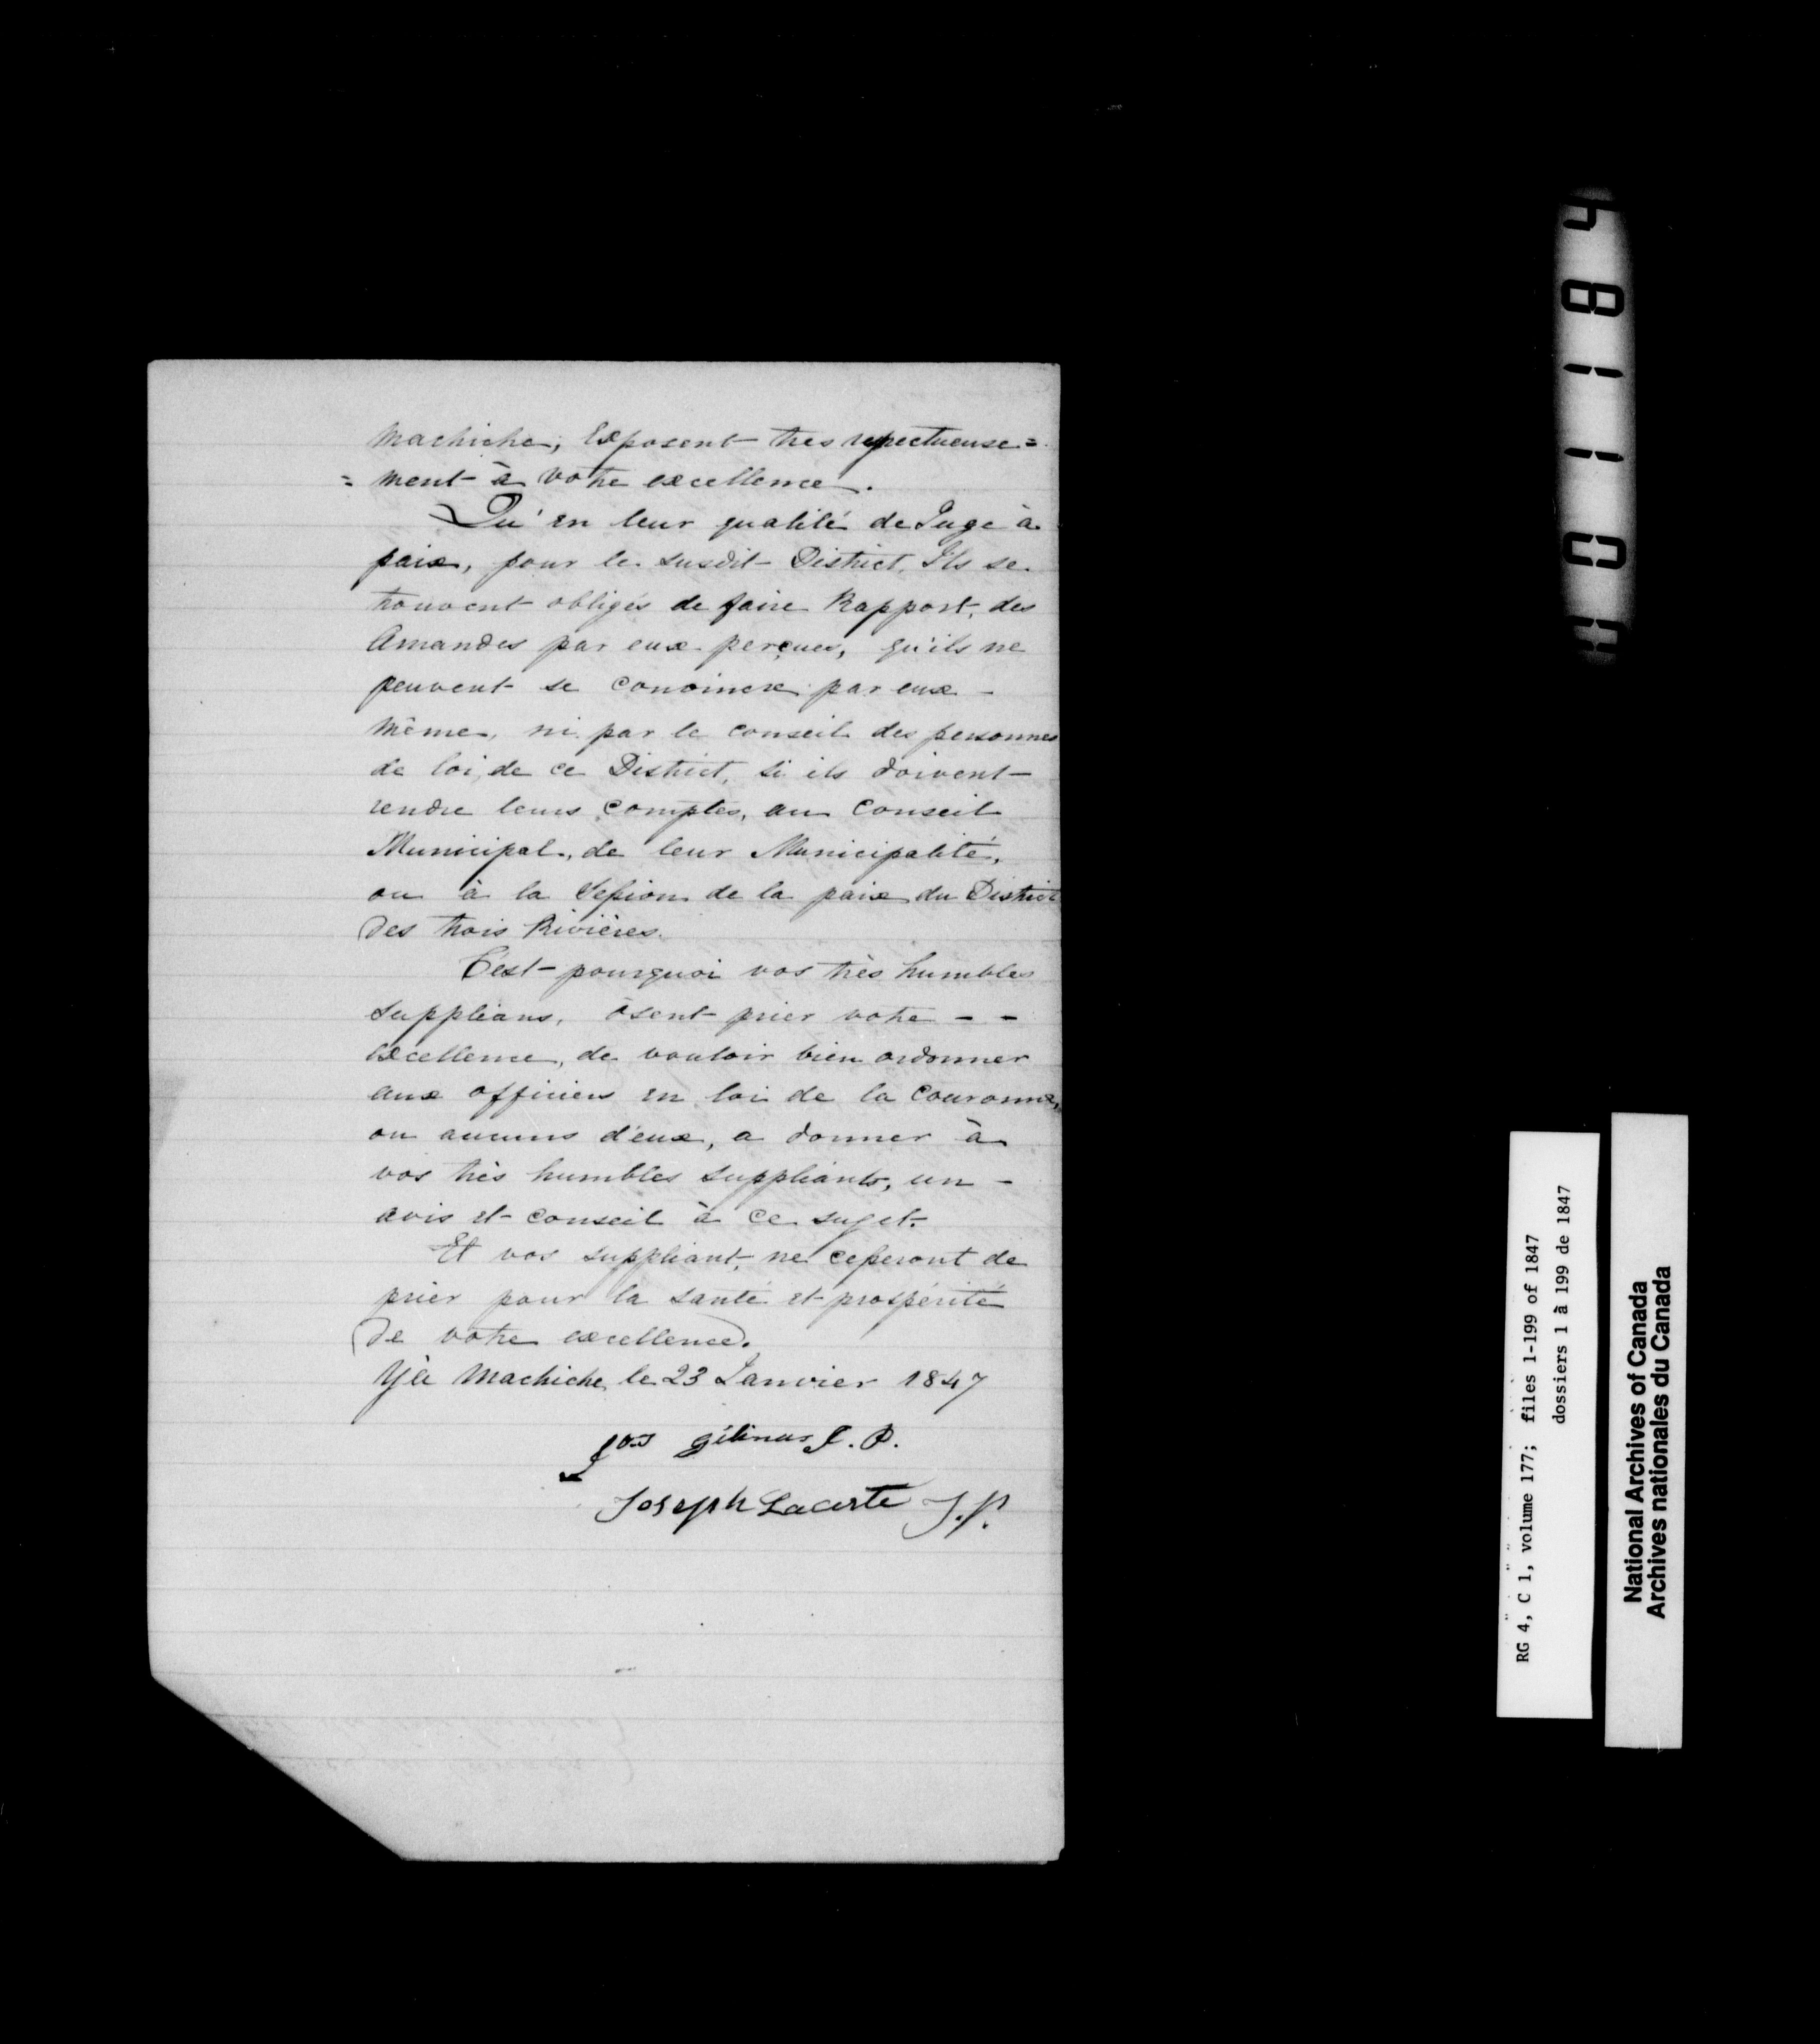 Machiche, Exposent tres respectueuse=
= ment à votre excellence.
Qu'en leur qualité de Juge à
paix, pour le susdit District, Ils se
trouvent obligés de faire Rapport, des
Amandes par eux perçues, qu'ils ne
peuvent se convincre par eux -
même, ni par le conseil des personnes
de loi, de ce District, si ils doivent -
rendre leurs comptes, au Conseil
Municipal, de leur Municipalité,
ou à la Session de la paix du District
des trois Rivières.
C'est pourquoi vos très humbles
Supplians, ôsent prier votre - -
excellence, de vouloir bien ordonner
aux officiers en loi de la Couronne,
ou aucuns d'eux, a donner à
vos très humbles suppliants, un -
avis et conseil à ce sujet.
Et vos suppliant, ne cesseront de
prier pour la santé et prospérité
de votre excellence.
Machiche, le 23 Janvier 1847
Jos Gélinas J. P.
Joseph Lacerte J. P.
RG 4, C 1, volume 177; files 1-199 of 1847
dossiers 1 à 199 de 1847
National Archives of Canada
Archives nationales du Canada